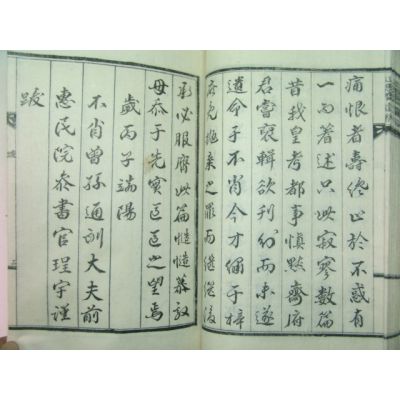 痛恨者壽終止於不惑有
一而著述只此寂寥數篇
昔我皇考都事愼默齋府
君嘗裒輯欲刊行而未遂
遺命于不肖今才繡于梓
庶免棄之罪而繼後
承必服膺此篇慥慥慕效
毋忝于先實區區之望焉
歲丙子端陽
不肖曾孫通訓大夫前
惠民院參書官珵宇謹
跋